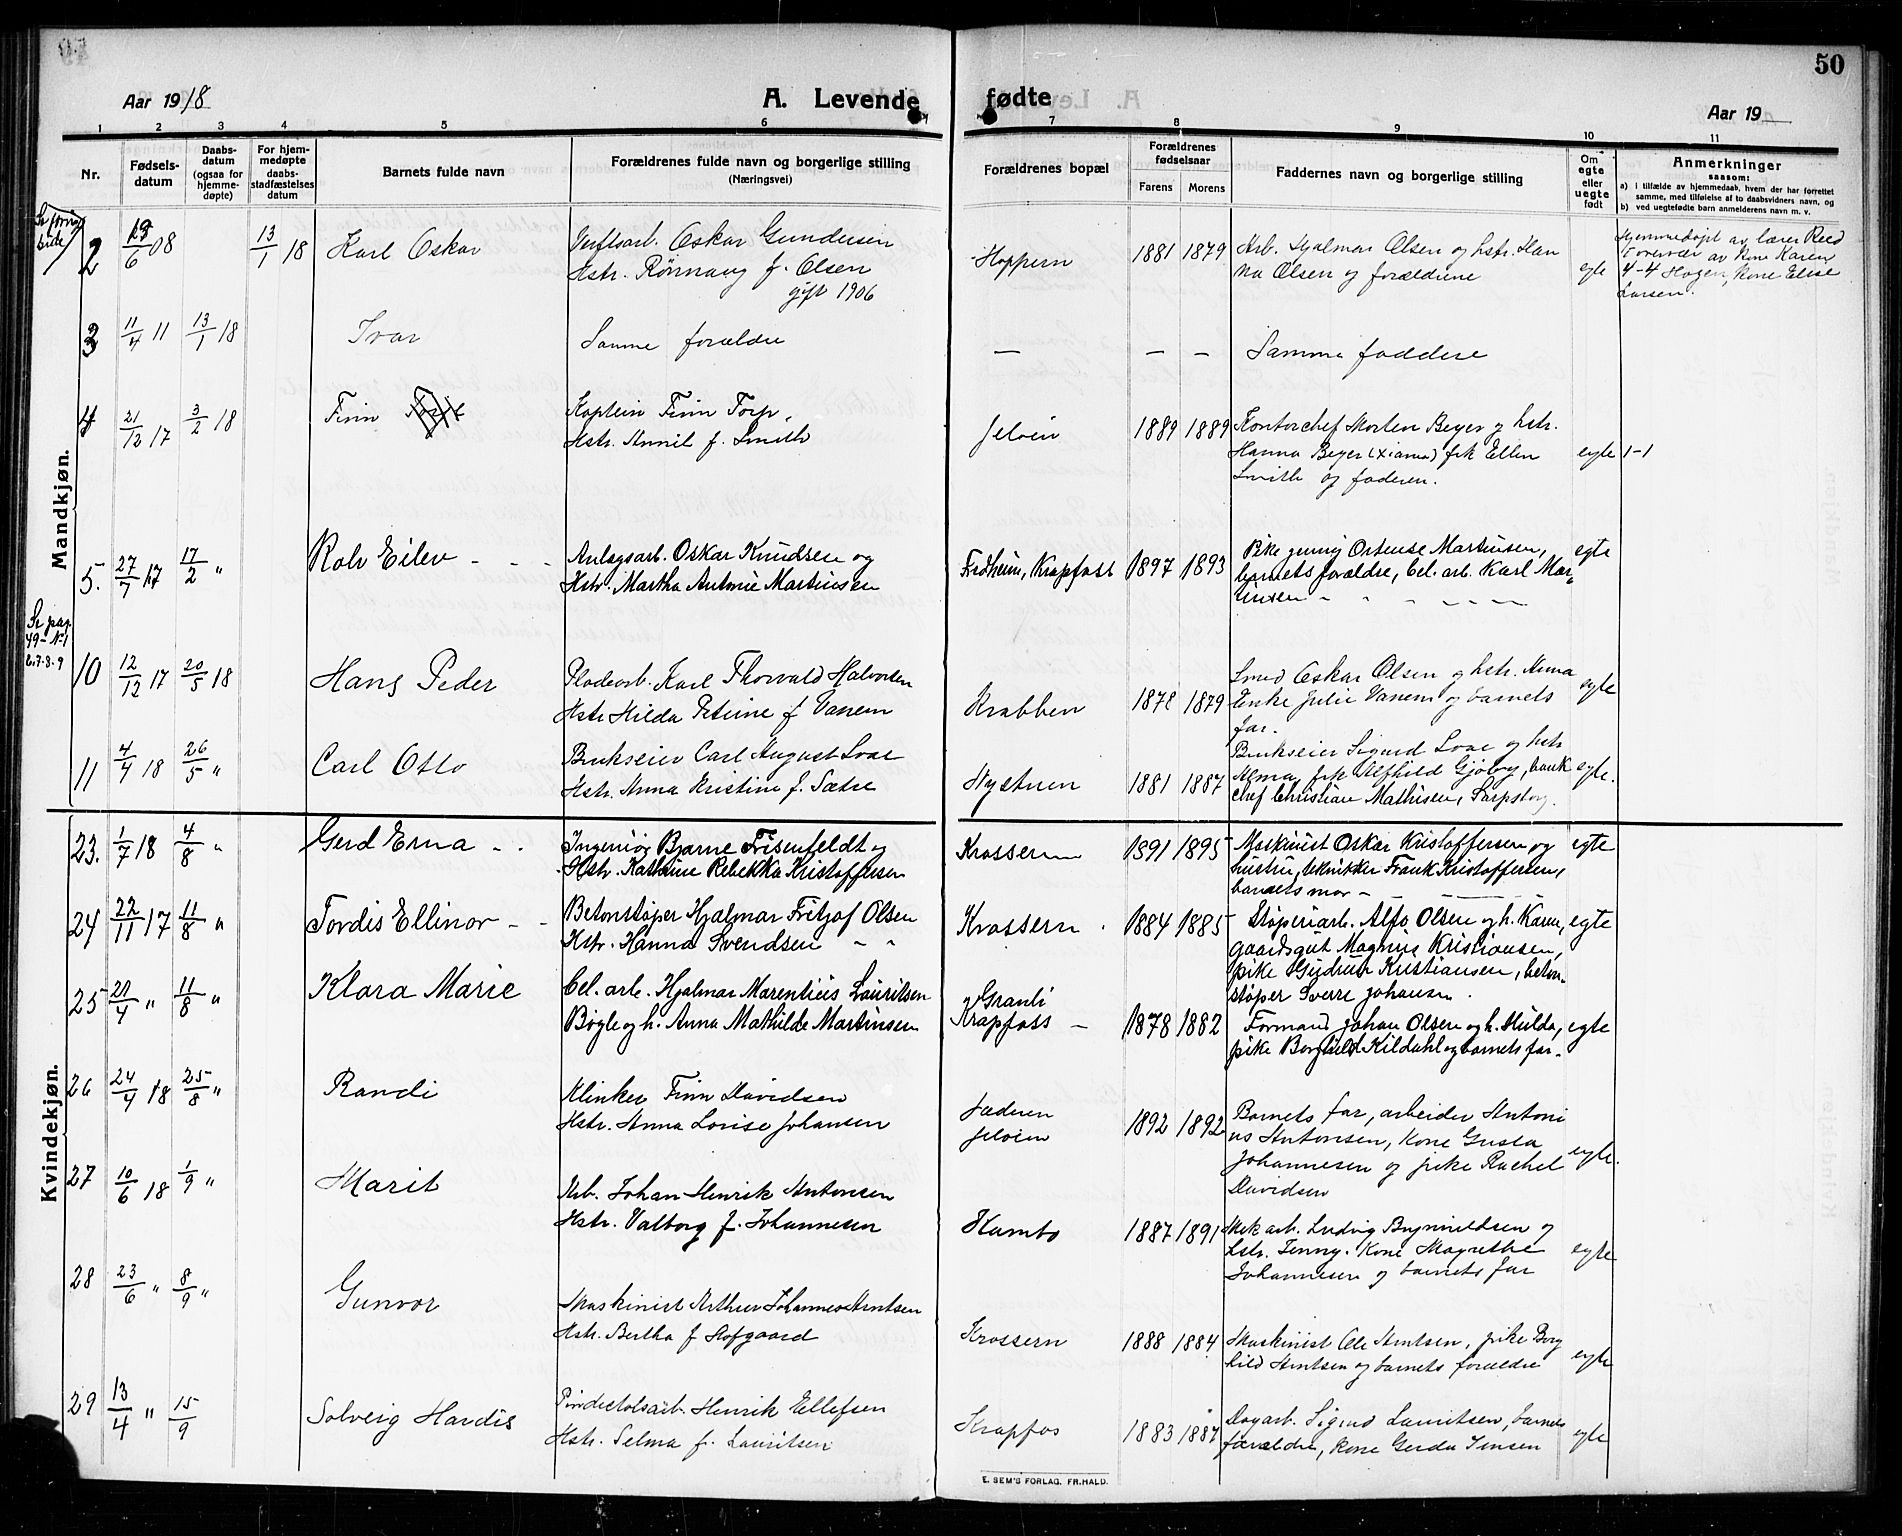 50
Aar 1918
A. Levende fødte
Aar 19
1 2 3 4 5 6 7 8 9 10 11
Nr.
Fødsels-
datum
Daabs-
datum
(ogsaa for
hjemme-
døpte)
For hjem-
medøpte
daabs-
stadfæstelses
datum
Barnets fulde navn
Forældrenes fulde navn og borgerlige stilling
(Næringsvei)
Forældrenes bopæl
Forældrenes
fødselsaar
Farens Morens
Faddernes navn og borgerlige stilling
Om
egte
eller
uegte
født
Anmerkninger
saasom:
a) i tilfælde av hjemmedaab, hvem der har forrettet
samme, med tilføielse af to daabsvidners navn, og
b) ved uegtefødte barn anmelderens navn m. v.
Mandkjøn.
2 08 13/1 18 Karl Oskar Verftsarb. Oskar Gundersen
Hstr. Rönnaug f. Olsen
gift 1906
Hoppern 1881 1879 Arb. Hjalmar Olsen og hstr. Han
na Olsen og forældrene egte
Hjemmedøpt av lærer Reed
Overvær av Kone Karen
4-4 Hagen, Kone Elise
Larsen.
3 11/4 11 13/1 18 Ivar Samme forældre — — — Samme faddere
4 21/12 17 3/2 18 Finn Kaptein Finn Torp,
Hstr. Annil f. Smith
Jeløen 1889 1889 Kontorchef Morten Beyer og hstr.
Hanna Beyer (Xiania) frk Ellen
Smith og faderen. egte 1-1
5. 27/7 17 17/2 " Rolv Eilev - - - Anlagsarb. Oskar Knudsen og
Hstr. Martha Antonie Martinsen
Fredheim, Krapfoss 1897 1893 Pike Jenny Ortense Martinsen,
barnets forældre, Cel. arb. Karl Mar-
tinsen egte
Se pag.
49-N.1
6.7.8.9
10 12/12 17 20/5 18 Hans Peder Pladearb. Karl Thorvald Halvorsen
Hstr Hilda Petrine f Vanem
Krabben 1878 1879 Smed Oskar Olsen og hstr. Anna
Enke Julie Vanem og barnets
far. egte
11 4/4 18 26/5 " Carl Otto Brukseier Carl August Loae
Hstr. Anna Kristine f. Sætre
Nystuen 1881 1887 Brukseier Sigurd Loae og hstr
Alma, frk Alfhild Gjöby, bank
chef Christian Mathisen, Sarpsborg. egte.
Kvindekjøn.
23. 1/7 18 4/8 " Gerd Erna - . Ingeniør Bjarne Frisenfeldt og
Hstr. Kathrine Rebekka Kristoffersen
Krossern 1891 1895 Maskinist Oskar Kristoffersen og
hustru, tekniker Frank Kristoffersen,
barnets mor - egte
24 22/11 17 11/8 " Tordis Ellinor - - Betonstøper Hjalmar Fritjof Olsen
Hstr. Hanna Svendsen - -
Krossern . 1884 1885 Støperiarb. Alfo Olsen og h. Karen,
gaardsgut Magnus Kristiansen,
pike Gudrun Kristiansen, beton-
støper Sverre Johansen. egte
25 21/4 " 11/8 " Klara Marie Cel. arb. Hjalmar Marentius Lauritsen
Bøgle og h. Anna Mathilde Martinsen
Granli
Krapfoss - 1878 1882 Formand Johan Olsen og h. Hulda,
pike Borghild Kildahl og barnets far. egte
26 24/4 18 25/8 " Randi Klinker Finn Davidsen
Hstr. Anna Lovise Johansen
Jæderen
Jeløen 1892 1892 Barnets far, arbeider Antoni
us Antonsen, Kone Gusta
Johannesen og pike Rachel
Davidsen egte.
27 10/6 18 1/9 " Marit Arb. Johan Henrik Antonsen
Hstr. Valborg f. Johannesen
Kambo 1887 1891 Mek arb. Ludvig Brynildsen og
hstr. Jenny. Kone Magrethe
Johannesen og barnets far egte
28 23/6 " 8/9 " Gunvor Maskinist Arthur Johannes Arntsen
Hstr. Bertha f Hofgaard
Krossern 1888 1884 Maskinist Ole Arntsen, pike Borg
hild Arntsen og barnets forældre egte
29 13/4 " 15/9 Solveig Hardis Henrik Ellefsen
Hstr. Selma f. Lauritsen
Krapfos 1883 1887 Dagarb. Sigurd Lauritsen, barnets
forældre, kone Gerda Jensen egte
E. SEM'S FORLAG. FR.HALD.